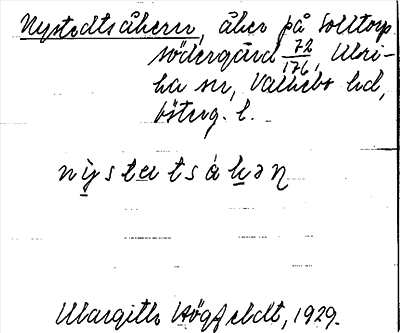 Nystedtsåkern, åker på Solltorp
södergård 72/176, Ulri-
ka sn, Valkebo hd,
österg. l.
nystetsåkəɳ
Margith Högfeldt, 1929.